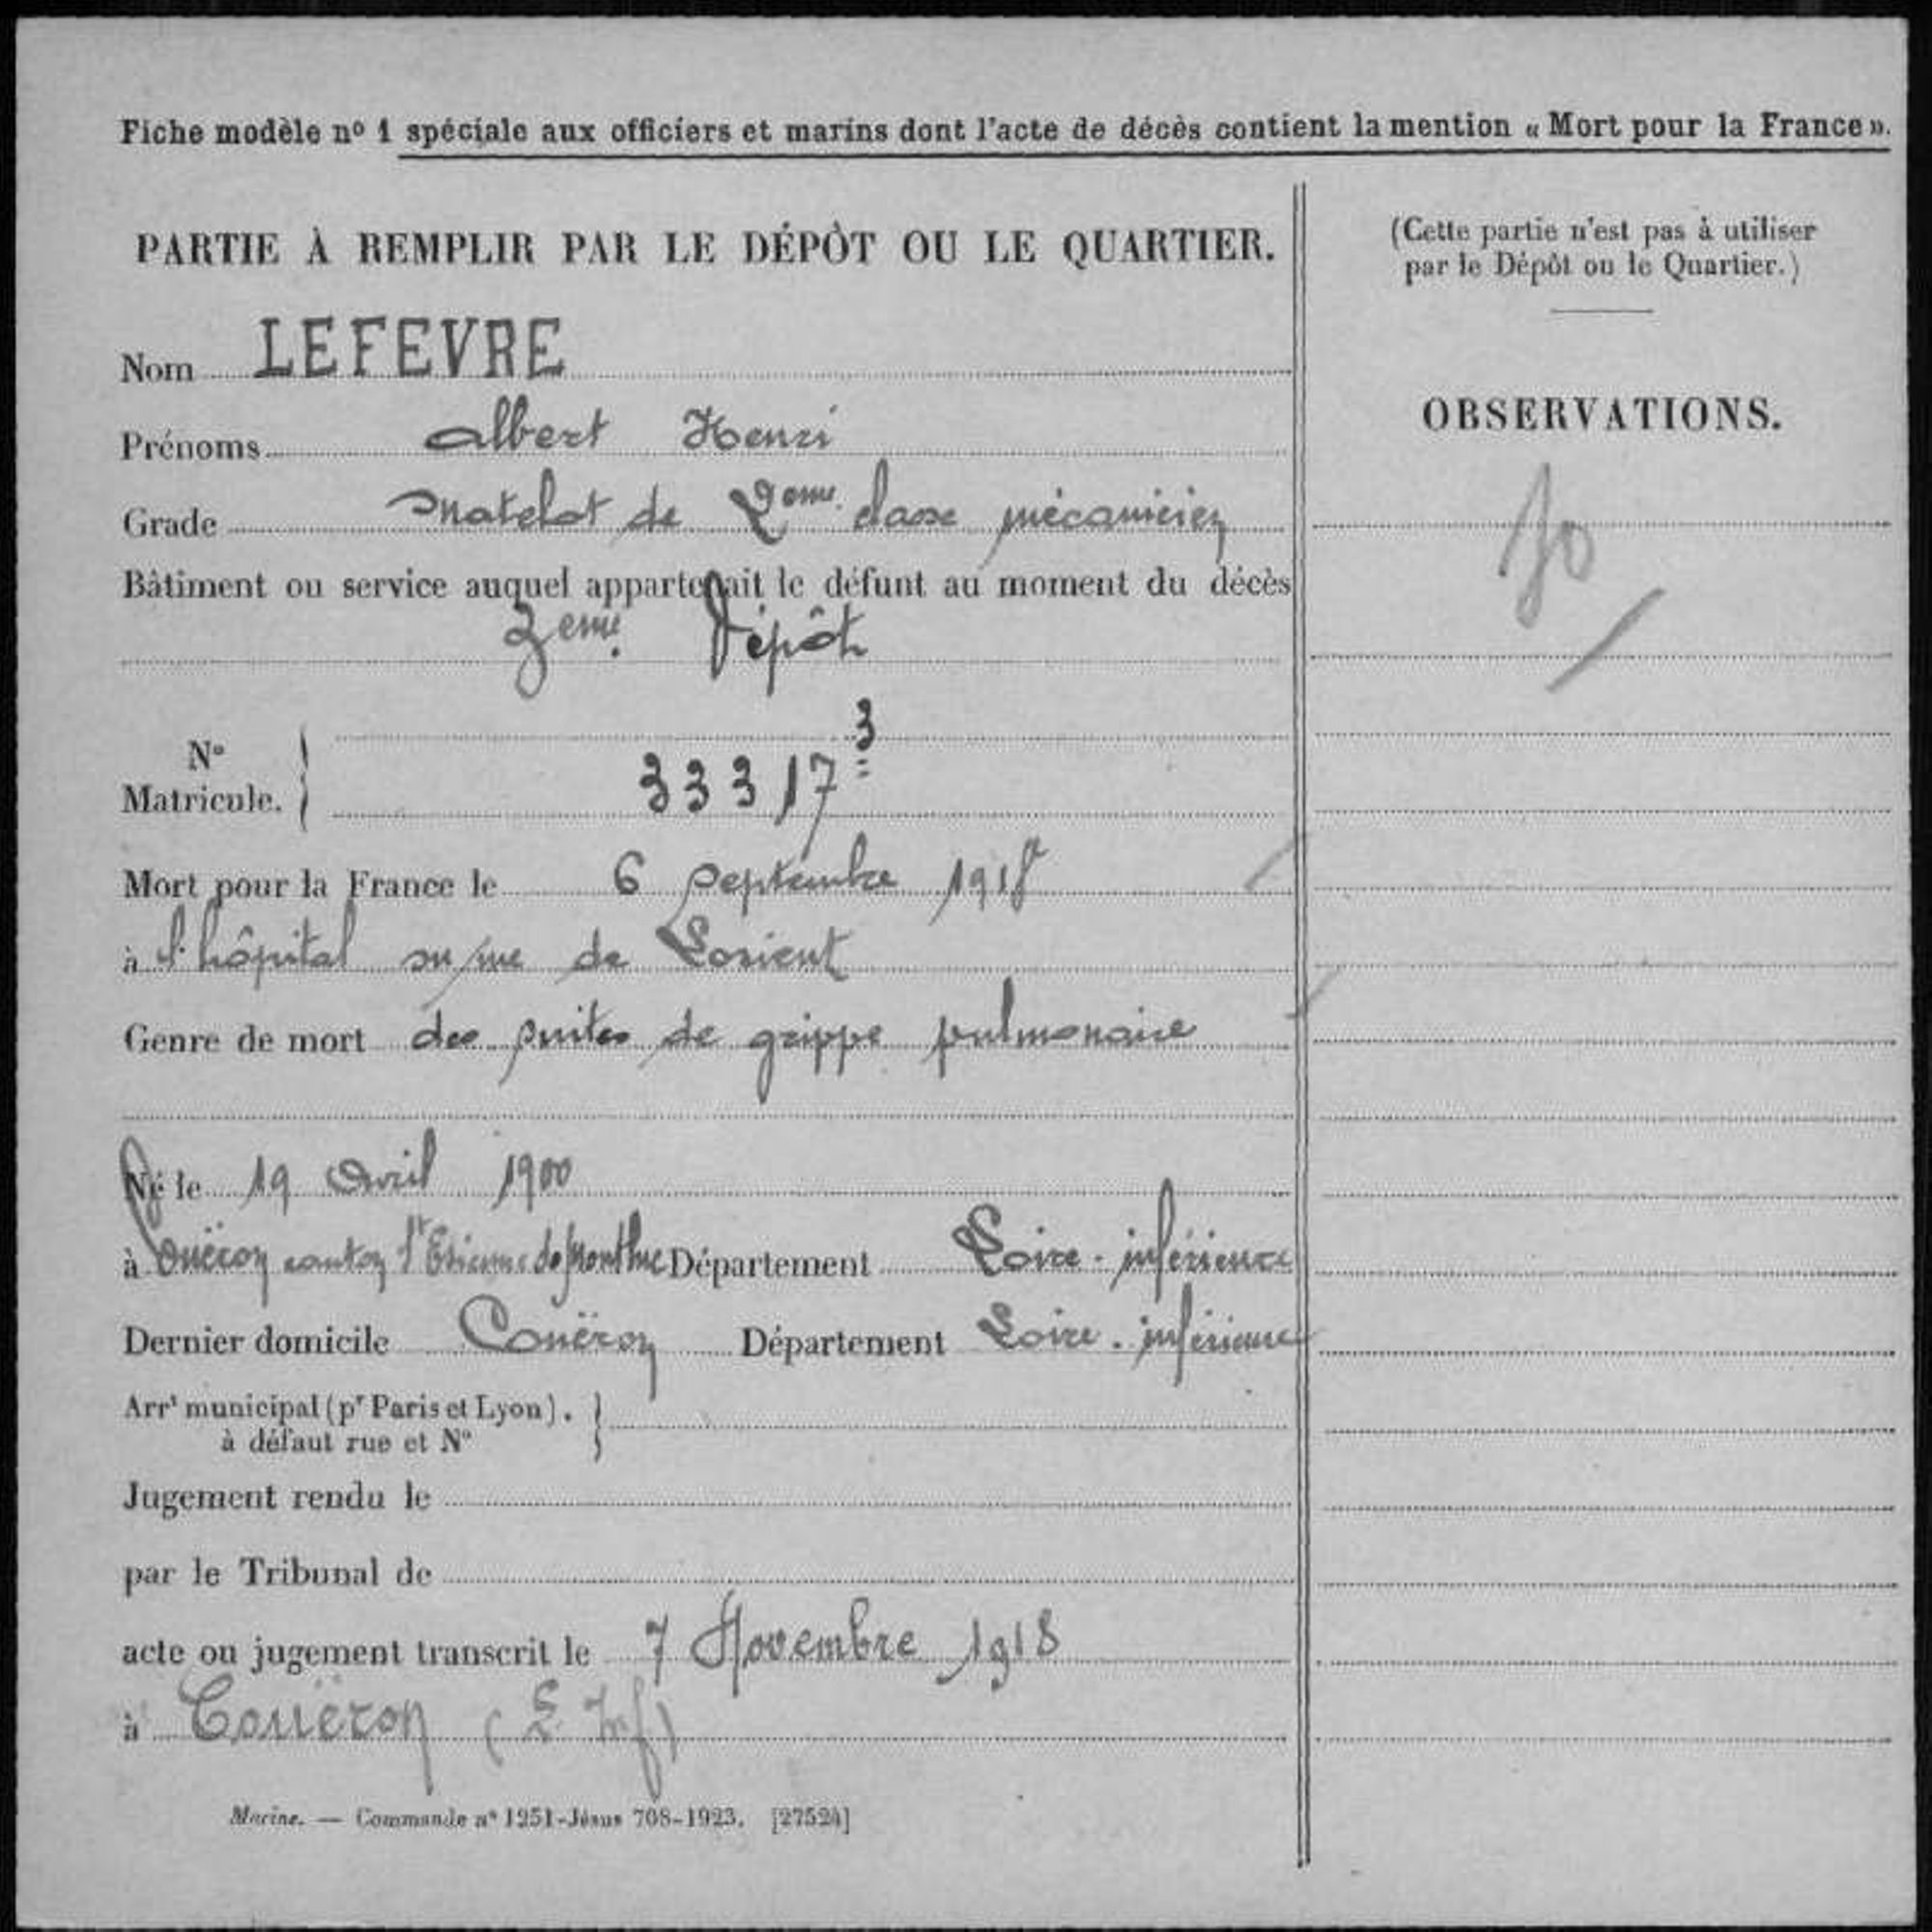 Fiche modèle nº 1 spéciale aux officiers et marins dont l'acte de décès contient la mention « Mort pour la France ».
PARTIE À REMPLIR PAR LE DÉPÔT OU LE QUARTIER.
Nom LEFEVRE
Prénoms Albert Henri
Grade Matelot de 2eme classe mécanicien
Bâtiment ou service auquel appartenait le défunt au moment du décès
3eme Dépôt
Nº
Matricule. } 33317 3
Mort pour la France le 6 Septembre 1918
à l'hôpital de Lorient
Genre de mort des suites de grippe pulmonaire
Né le 19 Avril 1900
à Couëron canton St Etienne de Montluc Département Loire-inférieure
Dernier domicile Couëron Département Loire-inférieure
Arrt municipal (pr Paris et Lyon). }
à défaut rue et Nº
Jugement rendu le
par le Tribunal de
acte ou jugement transcrit le 7 Novembre 1918
à Couëron (L Inf)
Marine. — Commande nº 1251-Jésus 708-1923. [27524]
(Cette partie n'est pas à utiliser
par le Dépôt ou le Quartier.)
OBSERVATIONS.